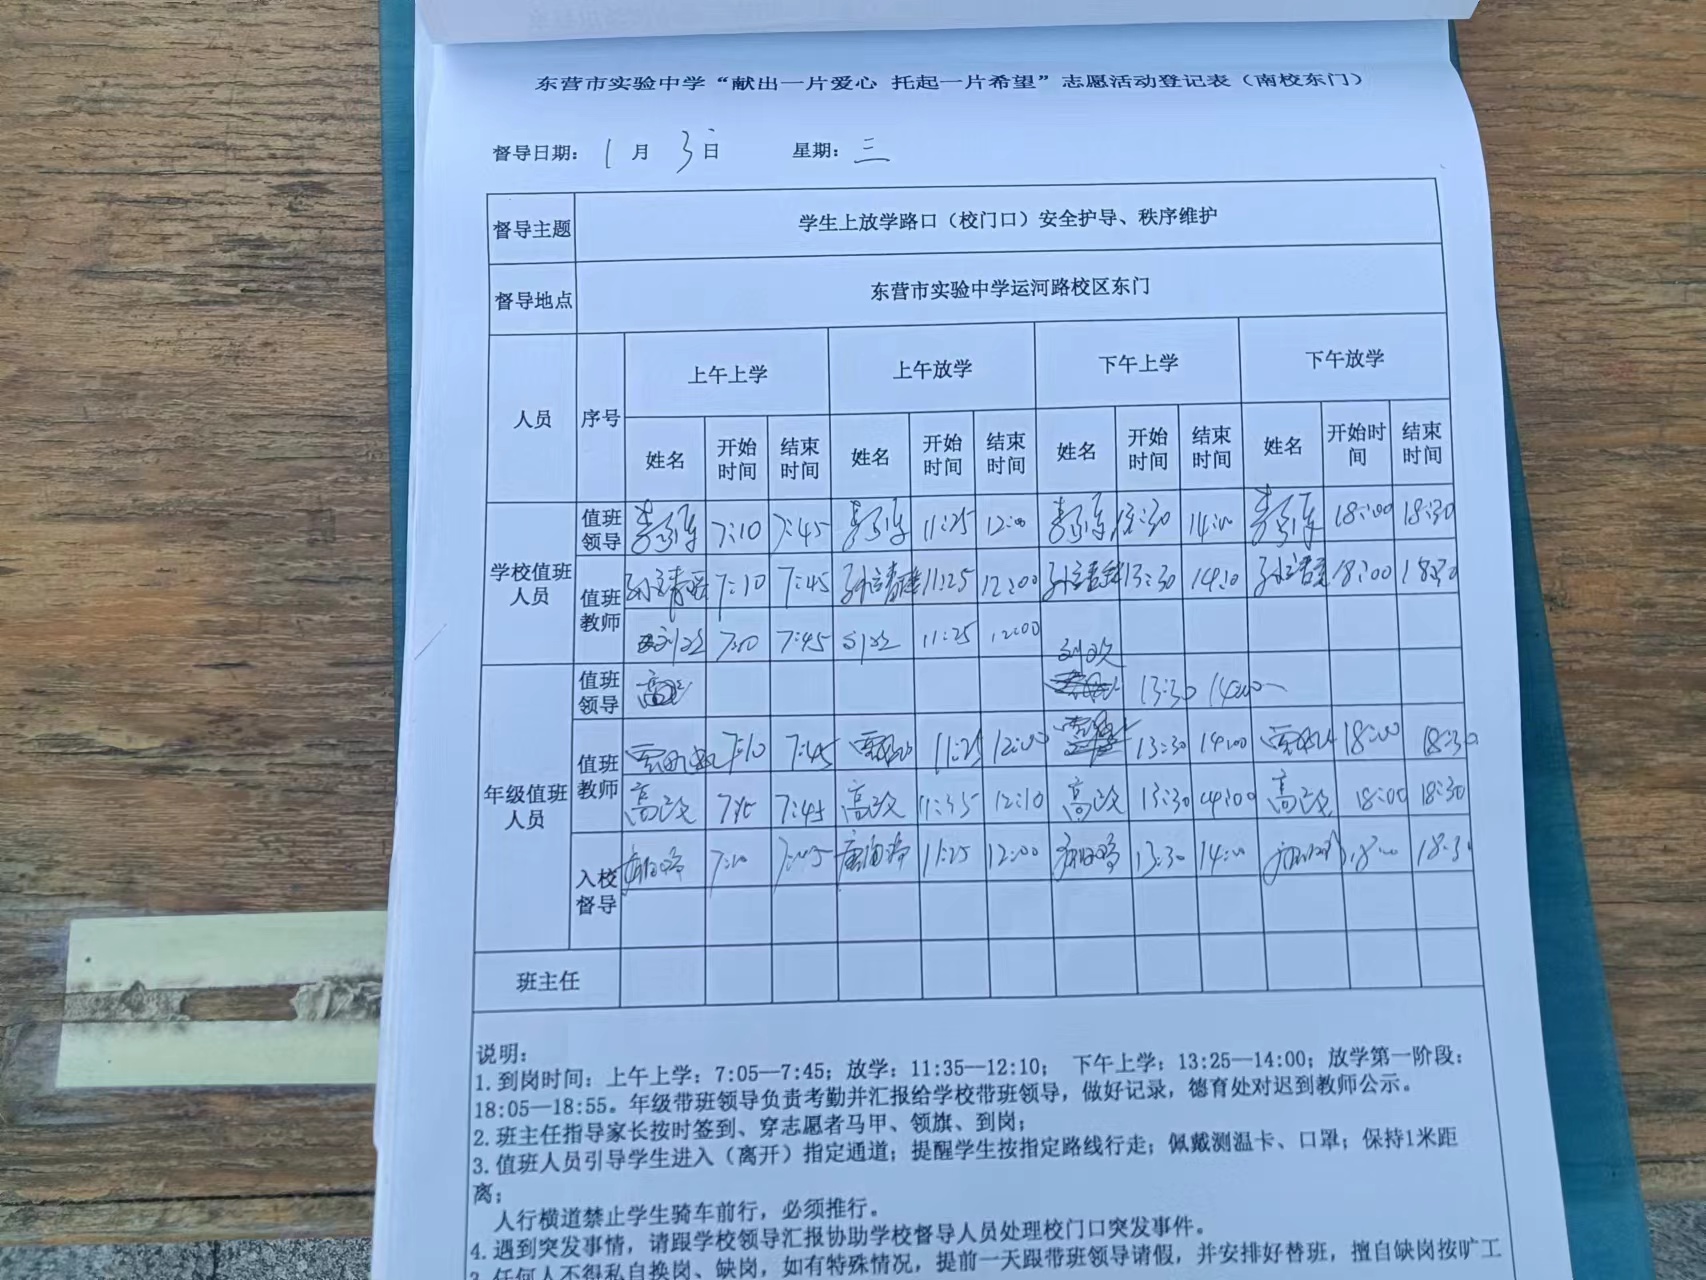 东营市实验中学“献出一片爱心 托起一片希望”志愿活动登记表（南校东门）
督导日期： 1 月 3 日 星期： 三
督导主题 学生上放学路口（校门口）安全护导、秩序维护
督导地点 东营市实验中学运河路校区东门
人员 序号 上午上学 上午放学 下午上学 下午放学
姓名 开始时间 结束时间 姓名 开始时间 结束时间 姓名 开始时间 结束时间 姓名 开始时间 结束时间
学校值班人员 值班领导 7:10 7:45 11:25 12:00 13:30 14:00 18:00 18:30
值班教师 7:10 7:45 11:25 12:00 13:30 14:00 18:00 18:30
7:45 11:25 12:00
年级值班人员 值班领导 13:30 14:00
值班教师 7:10 7:45 11:25 12:00 13:30 14:00 18:00 18:30
7:45 11:35 12:10 13:30 14:00 18:00 18:30
入校督导 7:10 7:45 11:25 12:00 13:30 14:00 18:00 18:30
班主任
说明：
1.到岗时间：上午上学：7:05—7:45；放学：11:35—12:10； 下午上学：13:25—14:00；放学第一阶段：
18:05—18:55。年级带班领导负责考勤并汇报给学校带班领导，做好记录，德育处对迟到教师公示。
2.班主任指导家长按时签到、穿志愿者马甲、领旗、到岗；
3.值班人员引导学生进入（离开）指定通道；提醒学生按指定路线行走；佩戴测温卡、口罩；保持1米距
离；
人行横道禁止学生骑车前行，必须推行。
4.遇到突发事情，请跟学校领导汇报协助学校督导人员处理校门口突发事件。
任何人不得私自换岗、缺岗，如有特殊情况，提前一天跟带班领导请假，并安排好替班，擅自缺岗按旷工